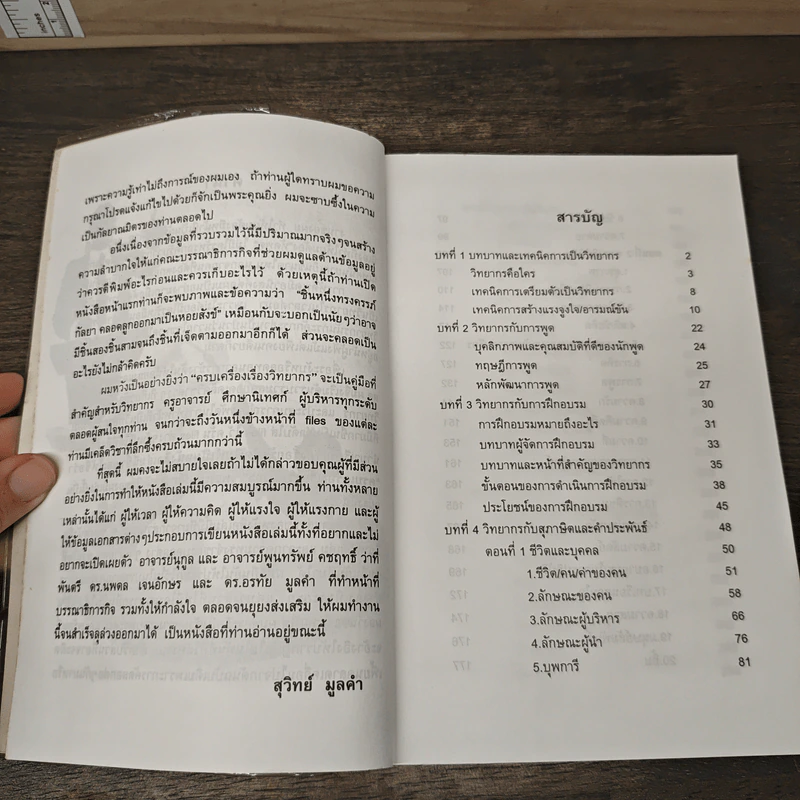 inches
1
2
เพราะความรู้เท่าไม่ถึงการณ์ของผมเอง ถ้าท่านผู้ใดทราบผมขอความ
กรุณาโปรดแจ้งแก้ไขไปด้วยก็จักเป็นพระคุณยิ่ง ผมจะซาบซึ้งในความ
เป็นกัลยาณมิตรของท่านตลอดไป
อนึ่งเนื่องจากข้อมูลที่รวบรวมไว้นี้มีปริมาณมากจริงๆจนสร้าง
ความลำบากใจให้แก่คณะบรรณาธิการกิจที่ช่วยผมดูแลด้านข้อมูลอยู่
ว่าควรตีพิมพ์อะไรก่อนและควรเก็บอะไรไว้ ด้วยเหตุนี้ถ้าท่านเปิด
หนังสือหน้าแรกท่านก็จะพบภาพและข้อความว่า "ชิ้นหนึ่งทรงครรภ์
กัลยา คลอดลูกออกมาเป็นหอยสังข์" เหมือนกับจะบอกเป็นนัยๆว่าอาจ
มีชิ้นสองชิ้นสามจนถึงชิ้นที่เจ็ดตามออกมาอีกก็ได้ ส่วนจะคลอดเป็น
อะไรยังไม่กล้าคิดครับ
ผมหวังเป็นอย่างยิ่งว่า "ครบเครื่องเรื่องวิทยากร" จะเป็นคู่มือที่
สำคัญสำหรับวิทยากร ครูอาจารย์ ศึกษานิเทศก์ ผู้บริหารทุกระดับ
ตลอดผู้สนใจทุกท่าน จนกว่าจะถึงวันหนึ่งข้างหน้าที่ files ของแต่ละ
ท่านมีเคล็ดวิชาที่ลึกซึ้งครบถ้วนมากกว่านี้
ที่สุดนี้ ผมคงจะไม่สบายใจเลยถ้าไม่ได้กล่าวขอบคุณผู้ที่มีส่วน
อย่างยิ่งในการทำให้หนังสือเล่มนี้มีความสมบูรณ์มากขึ้น ท่านทั้งหลาย
เหล่านั้นได้แก่ ผู้ให้เวลา ผู้ให้ความคิด ผู้ให้แรงใจ ผู้ให้แรงกาย และผู้
ให้ข้อมูลเอกสารต่างๆประกอบการเขียนหนังสือเล่มนี้ทั้งที่อยากและไม่
อยากจะเปิดเผยตัว อาจารย์นุกูล และ อาจารย์พูนทรัพย์ คชฤทธิ์ ว่าที่
พันตรี ดร.นพดล เจนอักษร และ ดร.อรทัย มูลคำ ที่ทำหน้าที่
บรรณาธิการกิจ รวมทั้งให้กำลังใจ ตลอดจนยุยงส่งเสริม ให้ผมทำงาน
นี้จนสำเร็จลุล่วงออกมาได้ เป็นหนังสือที่ท่านอ่านอยู่ขณะนี้
สุวิทย์ มูลคำ
สารบัญ
บทที่ 1 บทบาทและเทคนิคการเป็นวิทยากร 2
วิทยากรคือใคร 3
เทคนิคการเตรียมตัวเป็นวิทยากร 8
เทคนิคการสร้างแรงจูงใจ/อารมณ์ขัน 10
บทที่ 2 วิทยากรกับการพูด 22
บุคลิกภาพและคุณสมบัติที่ดีของนักพูด 24
ทฤษฎีการพูด 25
หลักพัฒนาการพูด 27
บทที่ 3 วิทยากรกับการฝึกอบรม 30
การฝึกอบรมหมายถึงอะไร 31
บทบาทผู้จัดการฝึกอบรม 33
บทบาทและหน้าที่สำคัญของวิทยากร 35
ขั้นตอนของการดำเนินการฝึกอบรม 38
ประโยชน์ของการฝึกอบรม 45
บทที่ 4 วิทยากรกับสุภาษิตและคำประพันธ์ 48
ตอนที่ 1 ชีวิตและบุคคล 50
1.ชีวิต/คน/ค่าของคน 51
2.ลักษณะของคน 58
3.ลักษณะผู้บริหาร 66
4.ลักษณะผู้นำ 76
5.บุพการี 81